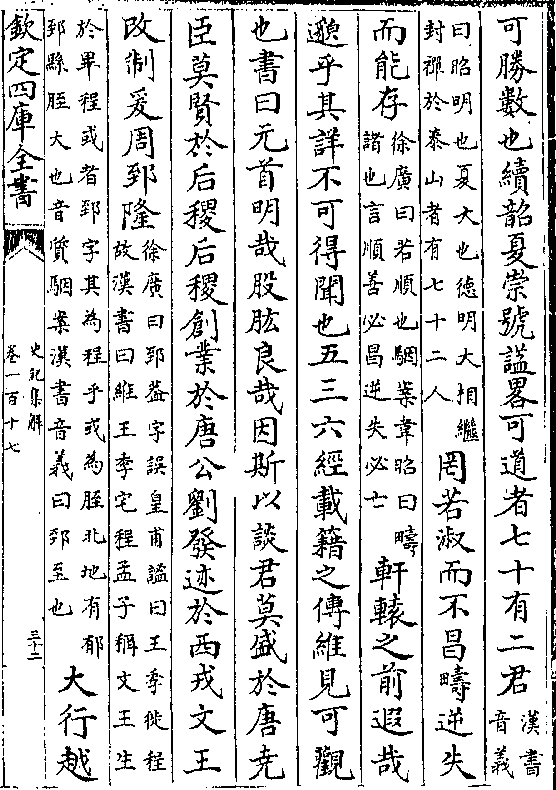 可勝數也續韶夏崇號諡畧可道者七十有二君漢書音義
曰昭明也夏大也徳明大相繼封禪於泰山者有七十二人罔若淑而不昌疇逆失
而能存徐廣曰若順也駰案韋昭曰疇誰也言順善必昌逆失必亡軒轅之前遐哉
邈乎其詳不可得聞也五三六經載籍之傳維見可觀
也書曰元首明哉股肱良哉因斯以談君莫盛於唐尭
臣莫賢於后稷后稷創業於唐公劉發迹於西戎文王
改制爰周郅隆徐廣曰郅葢字誤皇甫謐曰王季徙程故漢書曰維王季宅程孟子稱文王生
於畢程或者郅字其為程乎或為胵北地有郁郅縣胵大也音質駰案漢書音義曰郅至也大行越
欽定四庫全書
史記集解
卷一百十七
三十二